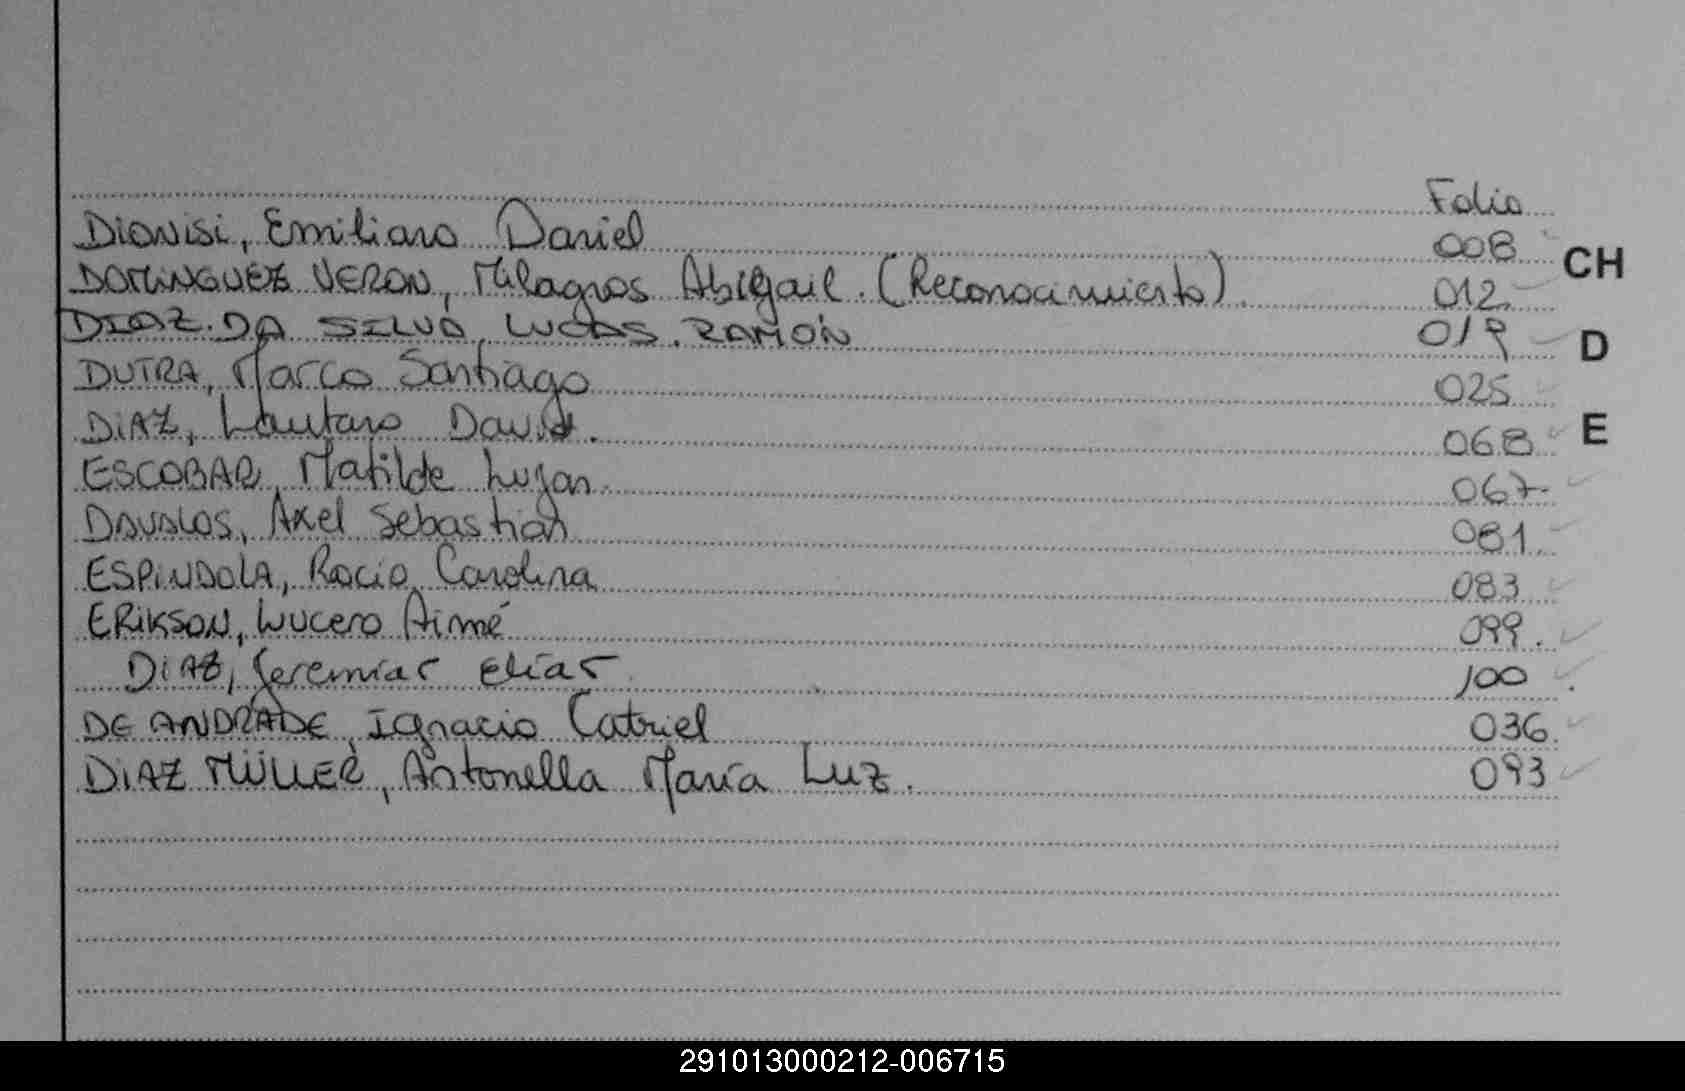 Folio
DIONISI, Emiliano Daniel 008
CH
DOMINGUEZ VERON, Milagros Abigail. (Reconocimiento). 012
DIAZ. DA SILVA, LUCAS. RAMÓN 019
D
DUTRA, Marco Santiago 025
DIAZ, Lautaro David. 068
E
ESCOBAR, Matilde Lujan. 067
DAVALOS, Axel Sebastian 081.
ESPINDOLA, Rocio Carolina 083
ERIKSON, Lucero Aimé 099.
DIAZ, Jeremias Elías 100
DE ANDRADE, Ignacio Catriel 036.
DIAZ MÜLLER, Antonella María Luz. 093
291013000212-006715